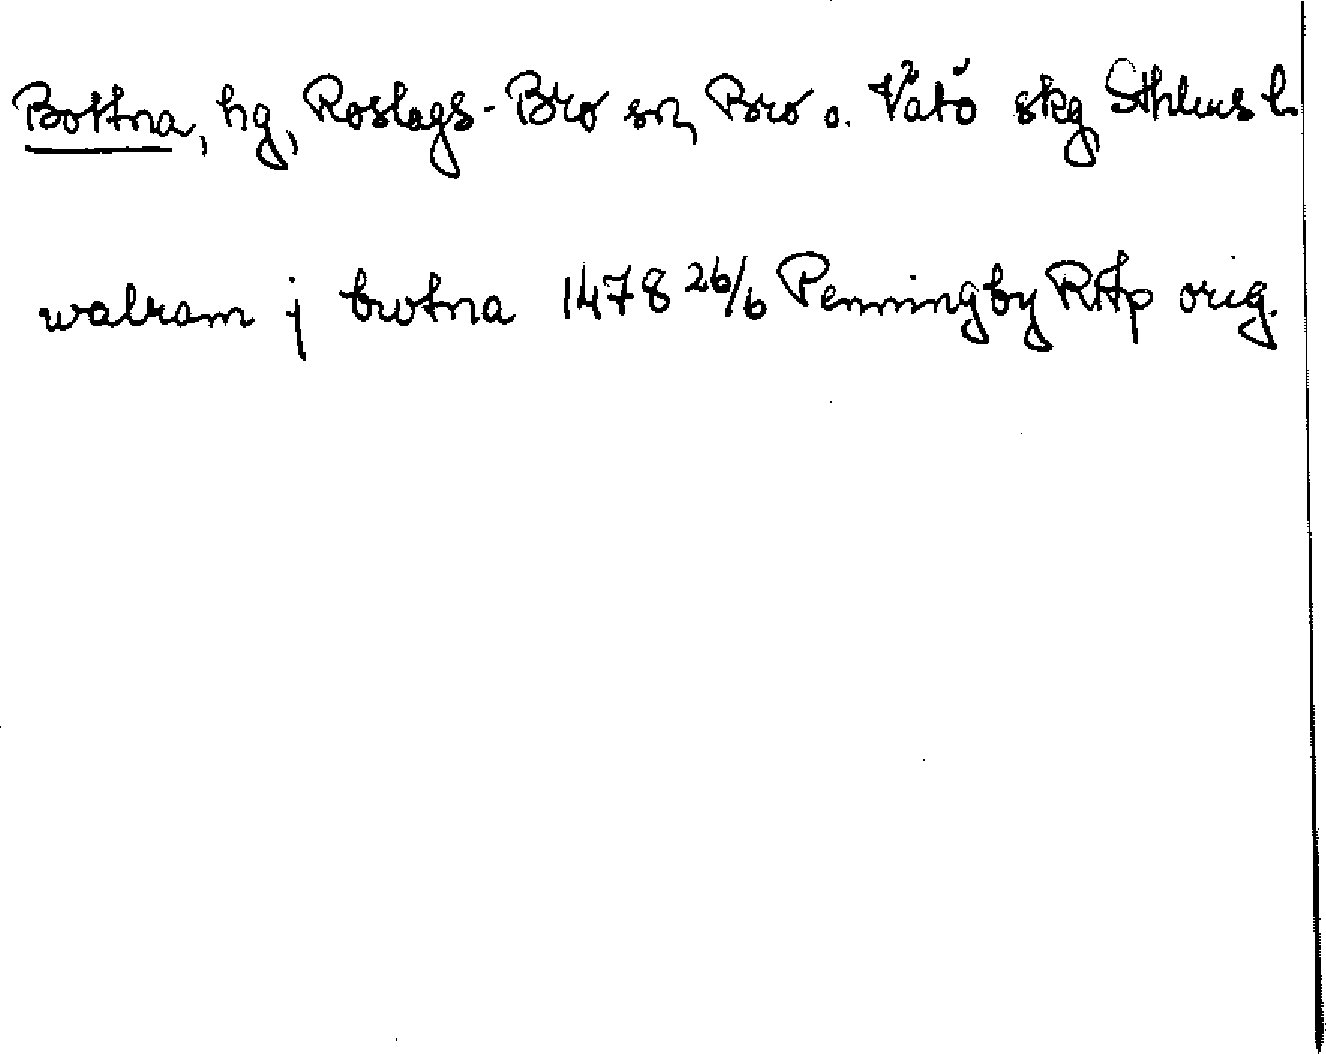 Bottna, hg, Roslags-Bro sn, Bro o. Vätö skg Sthlms l.
walram j brotna 1478 26/6 Penningby RAp orig.